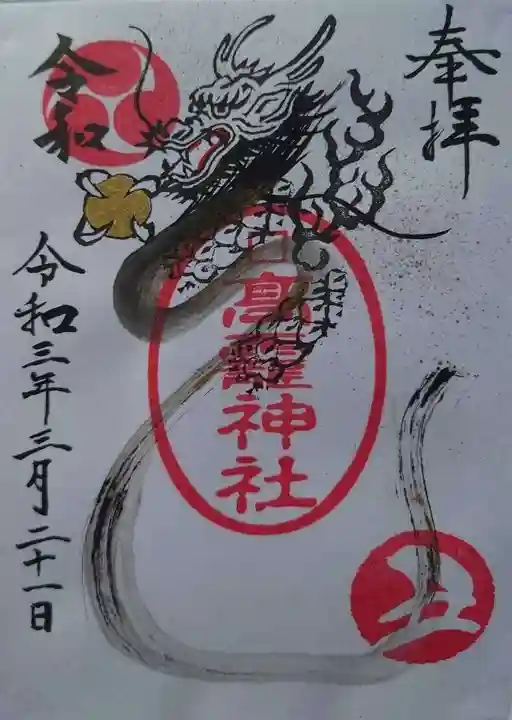 奉拝
高龗神社
令和
令和三年三月二十一日